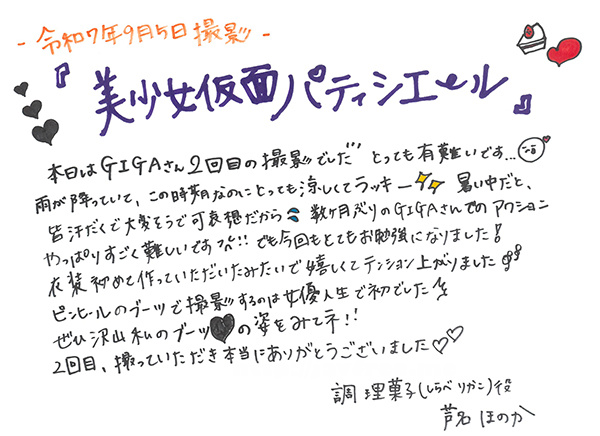 - 令和7年9月5日 撮影 -
『美少女仮面パティシエール』
本日はGIGAさん2回目の撮影でした‼ とっても有難いです...
雨が降っていて、この時期なのにとっても涼しくてラッキー 暑い中だと、
皆汗だくで大変そうで可哀想だから 数ヶ月ぶりのGIGAさんでのアクション
やっぱりすごく難しいです!! でも今回もとてもお勉強になりました!
衣装初めて作っていただいたみたいで嬉しくてテンション上がりました
ピンヒールのブーツで撮影するのは女優人生で初でした
ぜひ沢山私のブーツ♥の姿をみてネ!!
2回目、撮っていただき本当にありがとうございました♡♡
調 理菓子(しらべ りかこ)役
芦名 ほのか